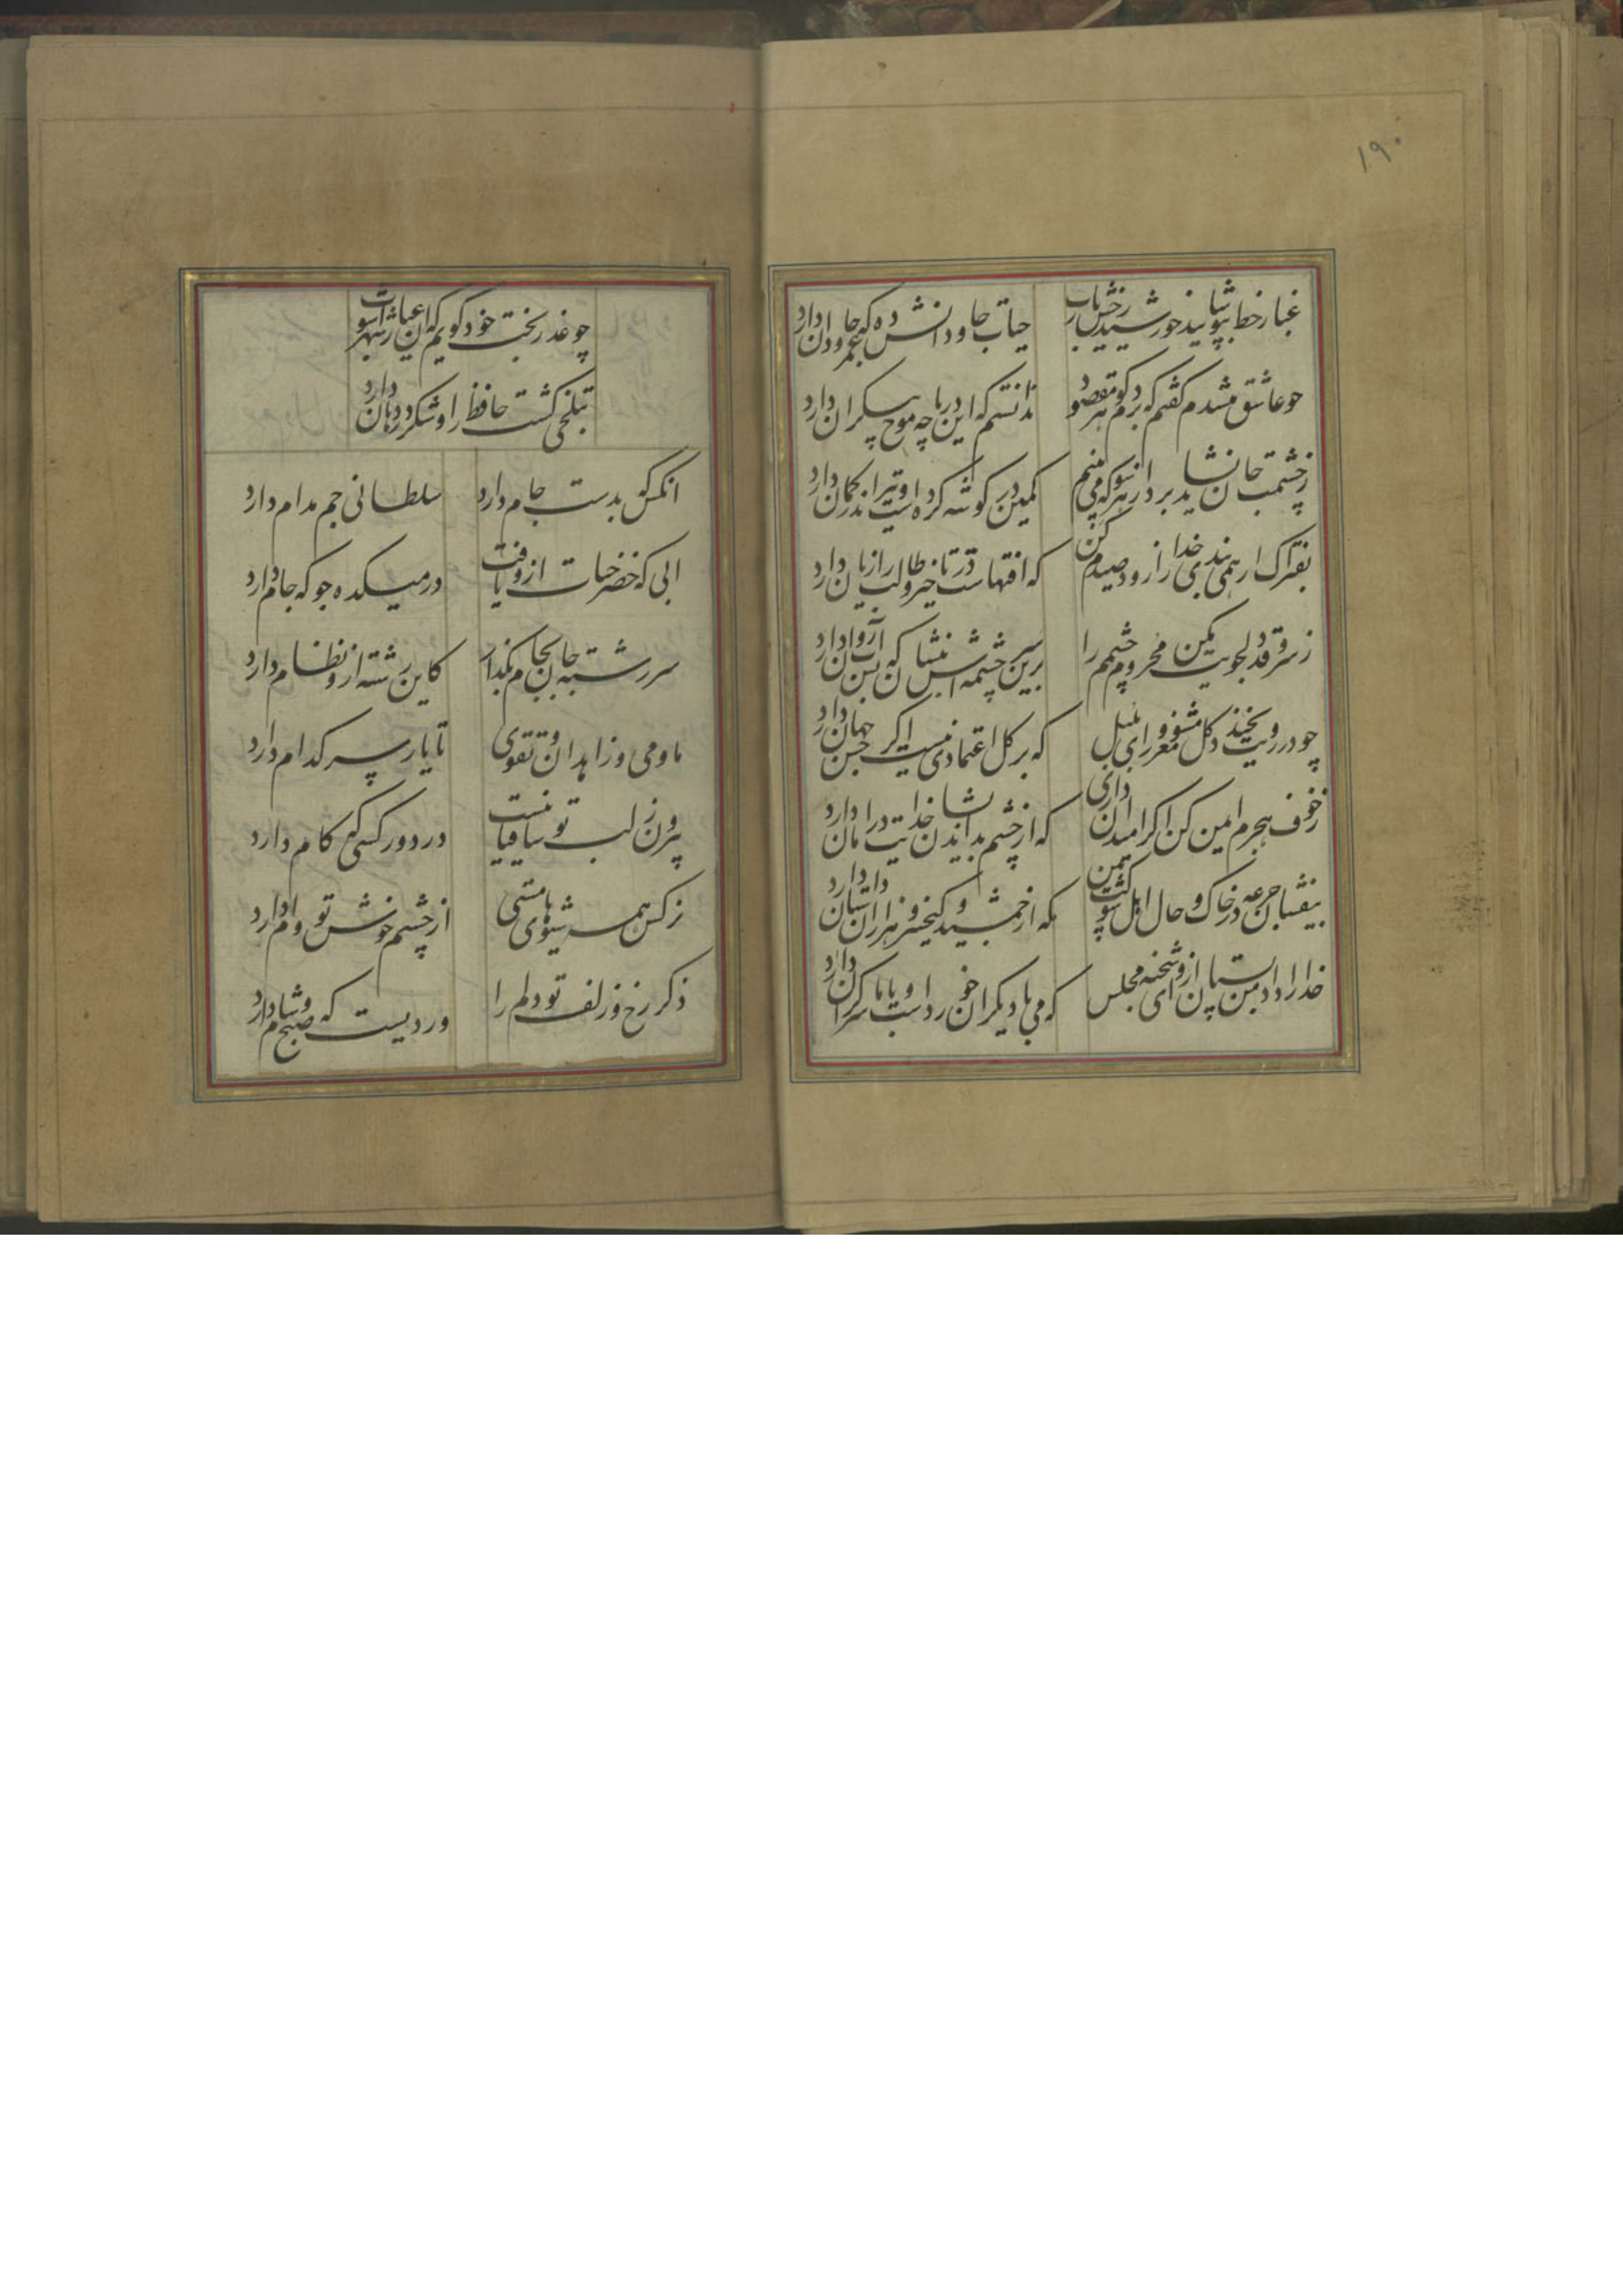 ۱۹۰
غبار خط بپوشانید خورشید رخش یارب حیات جاودانش ده که عمر جاودان دارد
چو عاشق میشدم گفتم که بردم گوهر مقصود ندانستم که این دریا چه موج بیکران دارد
ز چشمت جان نشاید برد از هر سو که می بینم کمین در گوشه کرده است و تیر اندر کمان دارد
بفتراک ار همی بندی خدا را زود صیدم کن که آفتهاست در تاخیر و طالب را زیان دارد
ز سرو قد دلجویت مکن محروم چشمم را برین سرچشمه اش بنشان که بس آب روان دارد
چو در رویت بخندد گل مشو مغرور ای بلبل که بر گل اعتمادی نیست اگر حسن جهان دارد
ز خوف هجرم ایمن کن اگر امید آن داری که از چشم بداندیشان خدایت در امان دارد
بیفشان جرعه در خاک و حال اهل شوکت بین که از جمشید و کیخسرو هزاران داستان دارد
خدا را داد من بستان ازو ای شحنه مجلس که می با دیگران خورد است و با ما سر گران دارد
چو عذر بخت خود گویم که آن عیار شهرآشوب
بتلخی کشت حافظ را و شکر در دهان دارد
انکس که بدست جام دارد سلطانی جم مدام دارد
ابی که خضر حیات ازو یافت در میکده جو که جام دارد
سررشته جان بجام بگذار کاین رشته ازو نظام دارد
ما و می و زاهدان و تقوی تا یار سر کدام دارد
بیرون ز لب تو ساقیا نیست در دور کسی که کام دارد
نرکس همه شیوهای مستی از چشم خوش تو وام دارد
ذکر رخ و زلف تو دلم را وردیست که صبح و شام دارد